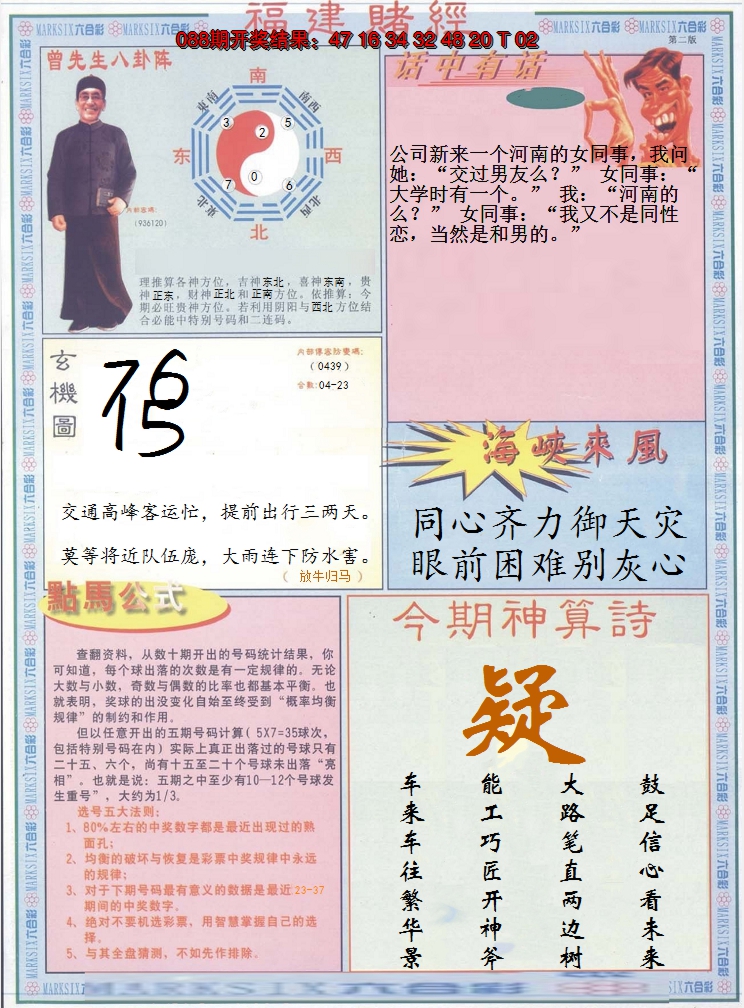 福建賭經
088期开奖结果：47 16 34 32 48 20 T 02
MARKSIX六合彩 MARKSIX六合彩 MARKSIX六合彩 MARKSIX六合彩
第二版
曾先生八卦阵
南
东南
南西
3
2
5
东
西
7
0
6
東北
北西
北
内部密碼：
（936120）
理推算各神方位，吉神东北，喜神东南，贵
神正东，财神正北和正南方位。依推算：今
期必旺贵神方位。若利用阴阳与西北方位结
合必能中特别号码和二连码。
话中有话
公司新来一个河南的女同事，我问
她：“交过男友么？” 女同事：“
大学时有一个。” 我：“河南的
么？” 女同事：“我又不是同性
恋，当然是和男的。”
玄機圖
内部傳密防密碼：
（0439）
合數:04-23
交通高峰客运忙，提前出行三两天。
莫等将近队伍庞，大雨连下防水害。
（ 放牛归马 ）
海峽來風
同心齐力御天灾
眼前困难别灰心
點馬公式
查翻资料，从数十期开出的号码统计结果，你
可知道，每个球出落的次数是有一定规律的。无论
大数与小数，奇数与偶数的比率也都基本平衡。也
就表明，奖球的出没变化自始至终受到“概率均衡
规律”的制约和作用。
但以任意开出的五期号码计算（ 5X7=35球次，
包括特别号码在内）实际上真正出落过的号球只有
二十五、六个，尚有十五至二十个号球未出落“亮
相”。也就是说：五期之中至少有10—12个号球发
生重号”，大约为1/3。
选号五大法则：
1、80%左右的中奖数字都是最近出现过的熟
面孔；
2、均衡的破坏与恢复是彩票中奖规律中永远
的规律；
3、对于下期号码最有意义的数据是最近23-37
期间的中奖数字。
4、绝对不要机选彩票，用智慧掌握自己的选
择。
5、与其全盘猜测，不如先作排除。
今期神算詩
疑
鼓足信心看未来
大路笔直两边树
能工巧匠开神斧
车来车往繁华景